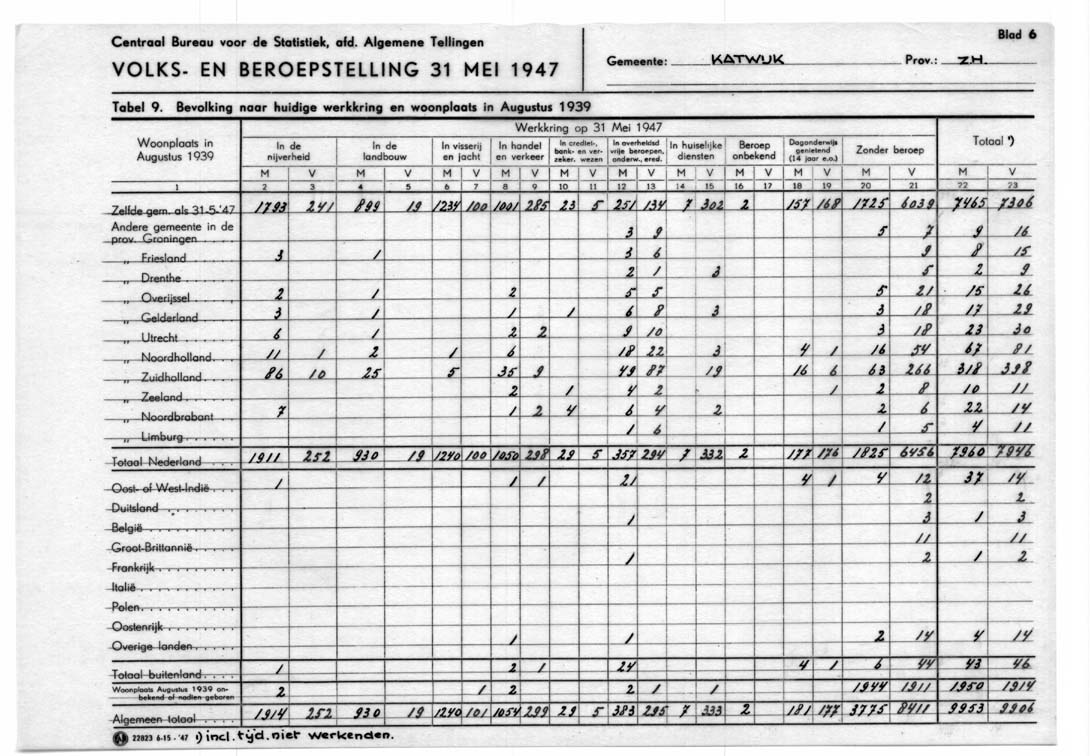 Centraal Bureau voor de Statistiek, afd. Algemene Tellingen
VOLKS- EN BEROEPSTELLING 31 MEI 1947
Gemeente: KATWIJK Prov.: Z.H.
Blad 6
Tabel 9. Bevolking naar huidige werkkring en woonplaats in Augustus 1939
Werkkring op 31 Mei 1947
Woonplaats in Augustus 1939 | In de nijverheid | In de landbouw | In visserij en jacht | In handel en verkeer | In crediet-, bank- en verzeker. wezen | In overheidsd vrije beroepen, onderw., ered. | In huiselijke diensten | Beroep onbekend | Dagonderwijs genietend (14 jaar e.o.) | Zonder beroep | Totaal ¹)
M V M V M V M V M V M V M V M V M V M V M V
1 2 3 4 5 6 7 8 9 10 11 12 13 14 15 16 17 18 19 20 21 22 23
Zelfde gem. als 31-5-'47 1793 241 899 19 1234 100 1001 285 23 5 251 134 7 302 2 157 168 1725 6039 7465 7306
Andere gemeente in de
prov. Groningen 3 9 5 7 9 16
„ Friesland 3 1 3 6 9 8 15
„ Drenthe 2 1 3 5 2 9
„ Overijssel 2 1 2 5 5 5 21 15 26
„ Gelderland 3 1 1 1 6 8 3 3 18 17 29
„ Utrecht 6 1 2 2 9 10 3 18 23 30
„ Noordholland 11 1 2 1 6 18 22 3 4 1 16 54 67 81
„ Zuidholland 86 10 25 5 35 9 49 87 19 16 6 63 266 318 398
„ Zeeland 2 1 4 2 1 2 8 10 11
„ Noordbrabant 7 1 2 4 6 4 2 2 6 22 14
„ Limburg 1 6 1 5 4 11
Totaal Nederland 1911 252 930 19 1240 100 1050 298 29 5 357 294 7 332 2 177 176 1825 6456 7960 7946
Oost- of West-Indië 1 1 1 21 4 1 4 12 37 14
Duitsland 2 2
België 1 3 1 3
Groot-Brittannië 11 11
Frankrijk 1 2 1 2
Italië
Polen
Oostenrijk
Overige landen 1 1 2 14 4 14
Totaal buitenland 1 2 1 24 4 1 6 44 43 46
Woonplaats Augustus 1939 onbekend of nadien geboren 2 1 2 2 1 1 1944 1911 1950 1914
Algemeen totaal 1914 252 930 19 1240 101 1054 299 29 5 383 295 7 333 2 181 177 3775 8411 9953 9906
22823 6-15-'47 ¹) incl. tijd. niet werkenden.